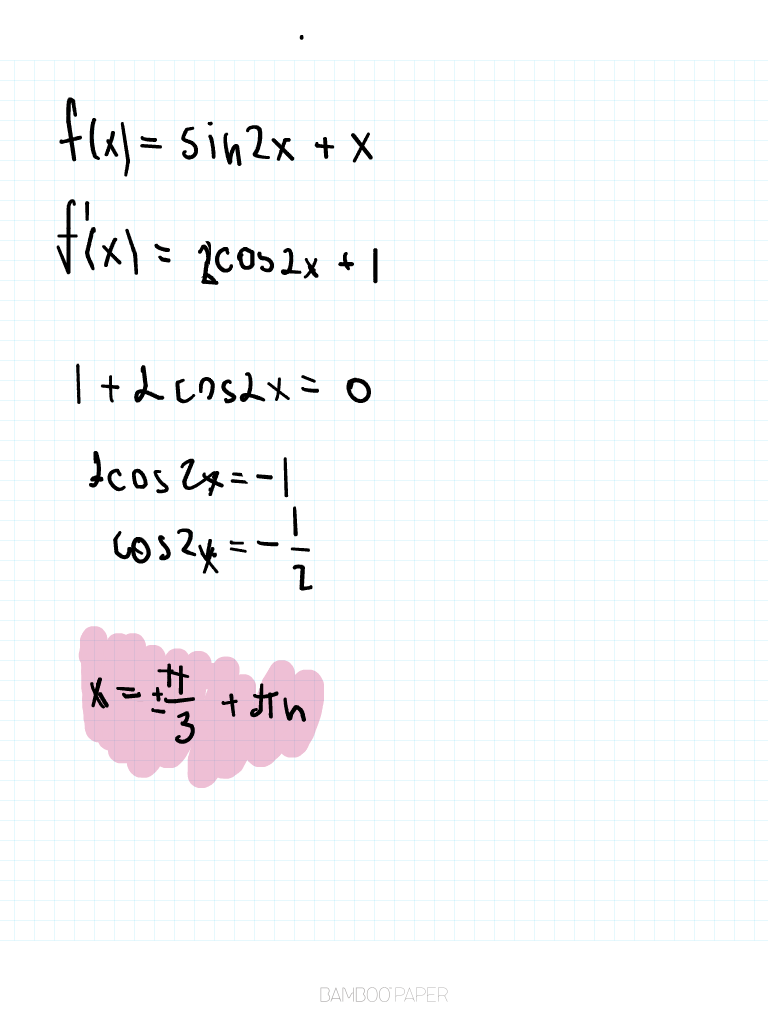 f(x) = sin2x + x
f'(x) = 2cos2x + 1
1 + 2cos2x = 0
2cos2x = -1
cos2x = - 1/2
x = ± π/3 + πn
BAMBOO PAPER